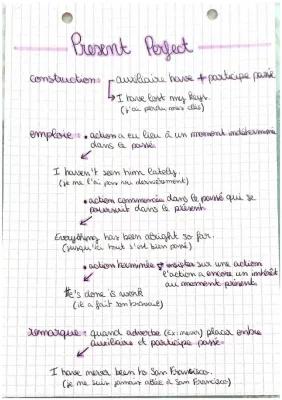 Present Perfect
construction: auxiliaire have + participe passé
I have lost my keys.
(j'ai perdu mes clés)
emploie: • action a eu lieu à un moment indéterminé
dans le passé.
I haven't seen him lately.
(je ne l'ai pas vu dernièrement)
• action commencée dans le passé qui se
poursuit dans le présent.
Everything has been alright so far.
(jusqu'ici tout s'est bien passé)
• action terminée insister sur une action
l'action a encore un intérêt
au moment présent.
He's done is work
(il a fait son travail)
remarque: quand adverbe (Ex: never) placé entre
auxiliaire et participe passé
I have never been to San Francisco.
(je ne suis jamais allée à San Francisco)